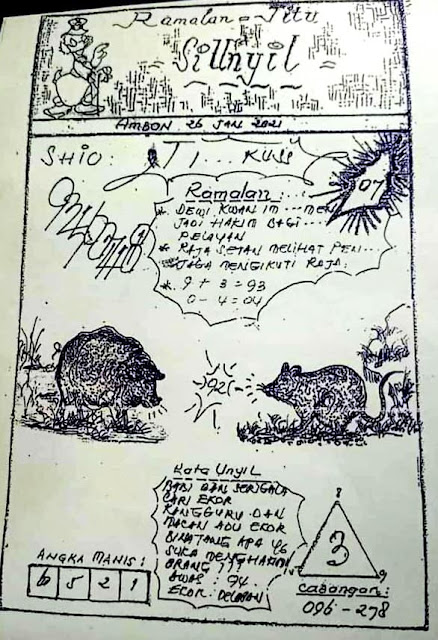 Ramalan - Jitu
Si Unyil
AMBON 26 JAN 2021
SHIO :
07
Ramalan :
* DEWI KWAN IM ... MEN
JADI HAKIM BAGI ...
PELAYAN
* RAJA SETAN MELIHAT PEN...
JAGA MENGIKUTI RAJA.
* 9 + 3 = 93
0 - 4 = 04
92
Kata Unyil
BABI DAN SERIGALA
CARI EKOR
KANGGURU DAN
MACAN ADU EKOR
BINATANG APA YG
SUKA MENGHAKIMI
ORANG ???
AWAS : 94.
EKOR : DELAPAN
8
3
9
ANGKA MANIS :
6 5 2 1
CADANGAN :
096 - 278